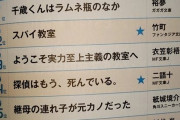 千歳くんはラムネ瓶のなか
裕夢
ガガガ文庫
スパイ教室
★
竹町
ファンタジア文庫
ようこそ実力至上主義の教室へ
衣笠彰梧
MF文庫J
探偵はもう、死んでいる。
★
二語十
MF文庫J
継母の連れ子が元カノだった
紙城境介
角川スニーカー文庫